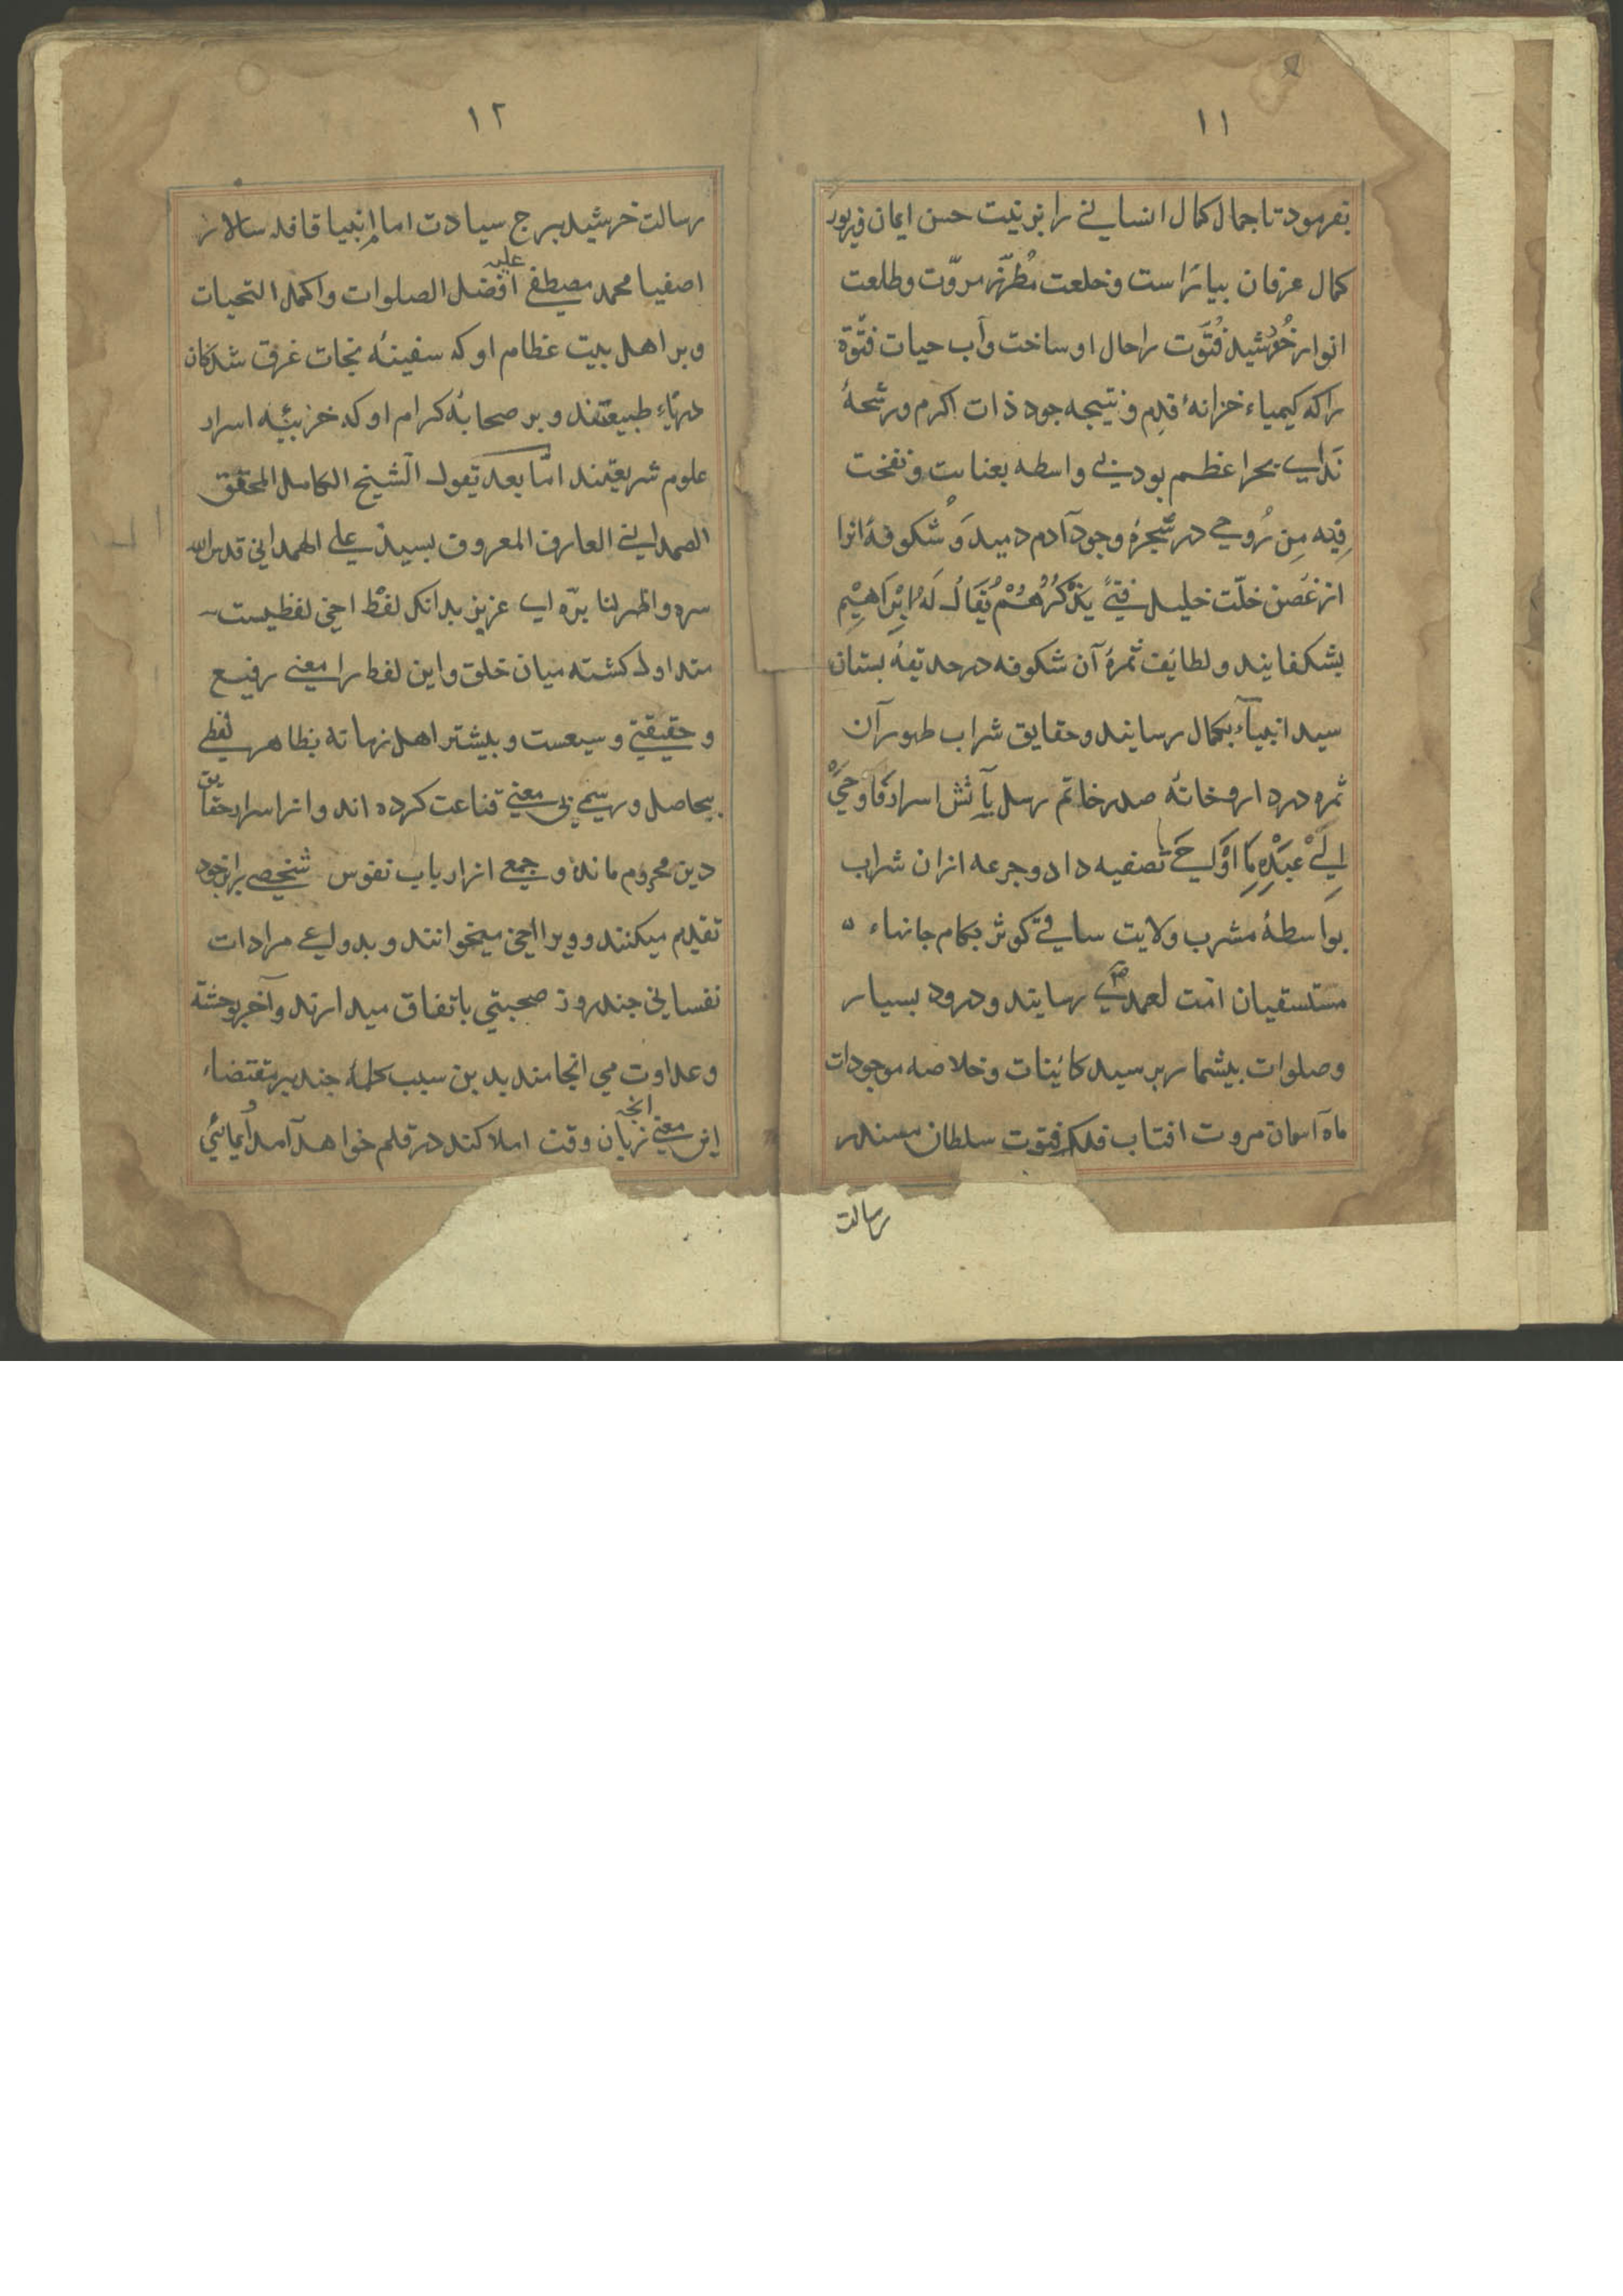 ۱۱
بفرمود تا جمال کمال انسانے را بزینت حسن ایمان و زیور
کمال عرفان بیاراست و خلعت مُطرّز مروّت و طلعت
انوار خُورشید فُتوَّت را حال او ساخت و آب حیات فتوّة
را که کیمیاء خزانهٔ قدم و نتیجه جود ذات اکرم و رشحهٔ
ندای بحر اعظم بود بے واسطه بعنایت و نفخت
فِیه مِن رُوحے در شجرهٔ وجود آدم دمید و شکوفه انرا
از غصن خلّت خلیل فتیً یَذْکُرُهُمْ یُقَالُ لَهُ اِبْرَاهِیْمِ
بشکفانید و لطایف ثمرهٔ آن شکوفه در حدیقهٔ بستان
سید انبیآء بکمال رسانید و حقایق شراب طهور آن
ثمره در داروخانهٔ صدر خاتم رسل بآتش اسرار فَاَوحیٰ
اِلیٰ عَبْدِهِ مَا اَوْحیٰ تصفیه داد و جرعه ازان شراب
بواسطهٔ مشرب ولایت ساقے کوثر بکام جانهاء
مستسقیان امت احمدی رسانید و درود بسیار
و صلوات بیشمار بر سید کاینات و خلاصه موجودات
ماه اسمان مروت افتاب فلک فتوت سلطان مسند
رسالت
۱۲
رسالت خورشید برج سیادت امام انبیا قافله سالار
اصفیا محمد مصطفے علیه افضل الصلوات و اکمل التحیات
و بر اهل بیت عظام او که سفینهٔ نجات غرق شدکان
دریاء طبیعتند و بر صحابهٔ کرام او که خزینهٔ اسرار
علوم شریعتند امّا بعد یقول الشیخ الکامل المحقق
الصمدانے العارف المعروف بسید علے الهمدانی قدس الله
سره و اظهر لنا برّه ای عزیز بدانکه لفظ اخی لفظیست
متداول کشته میان خلق و این لفظ را معنے رفیع
و حقیقتے وسیعست و بیشتر اهل زمانه بظاهر لفظے
بیحاصل و رسمے بی معنے قناعت کرده اند و از اسرار حقایق
دین محروم مانده و جمعے از ارباب نفوس شخصے را بر خود
تقدیم میکنند و ویرا اخی میخوانند و بدواعے مرادات
نفسانی چند روز صحبتی باتفاق میدارند و آخر بوحشة
و عداوت می انجامد بدین سبب کلمهٔ چند بر مقتضاء
این معنے انچه زبان وقت املا کند در قلم خواهد آمد و ایمائی